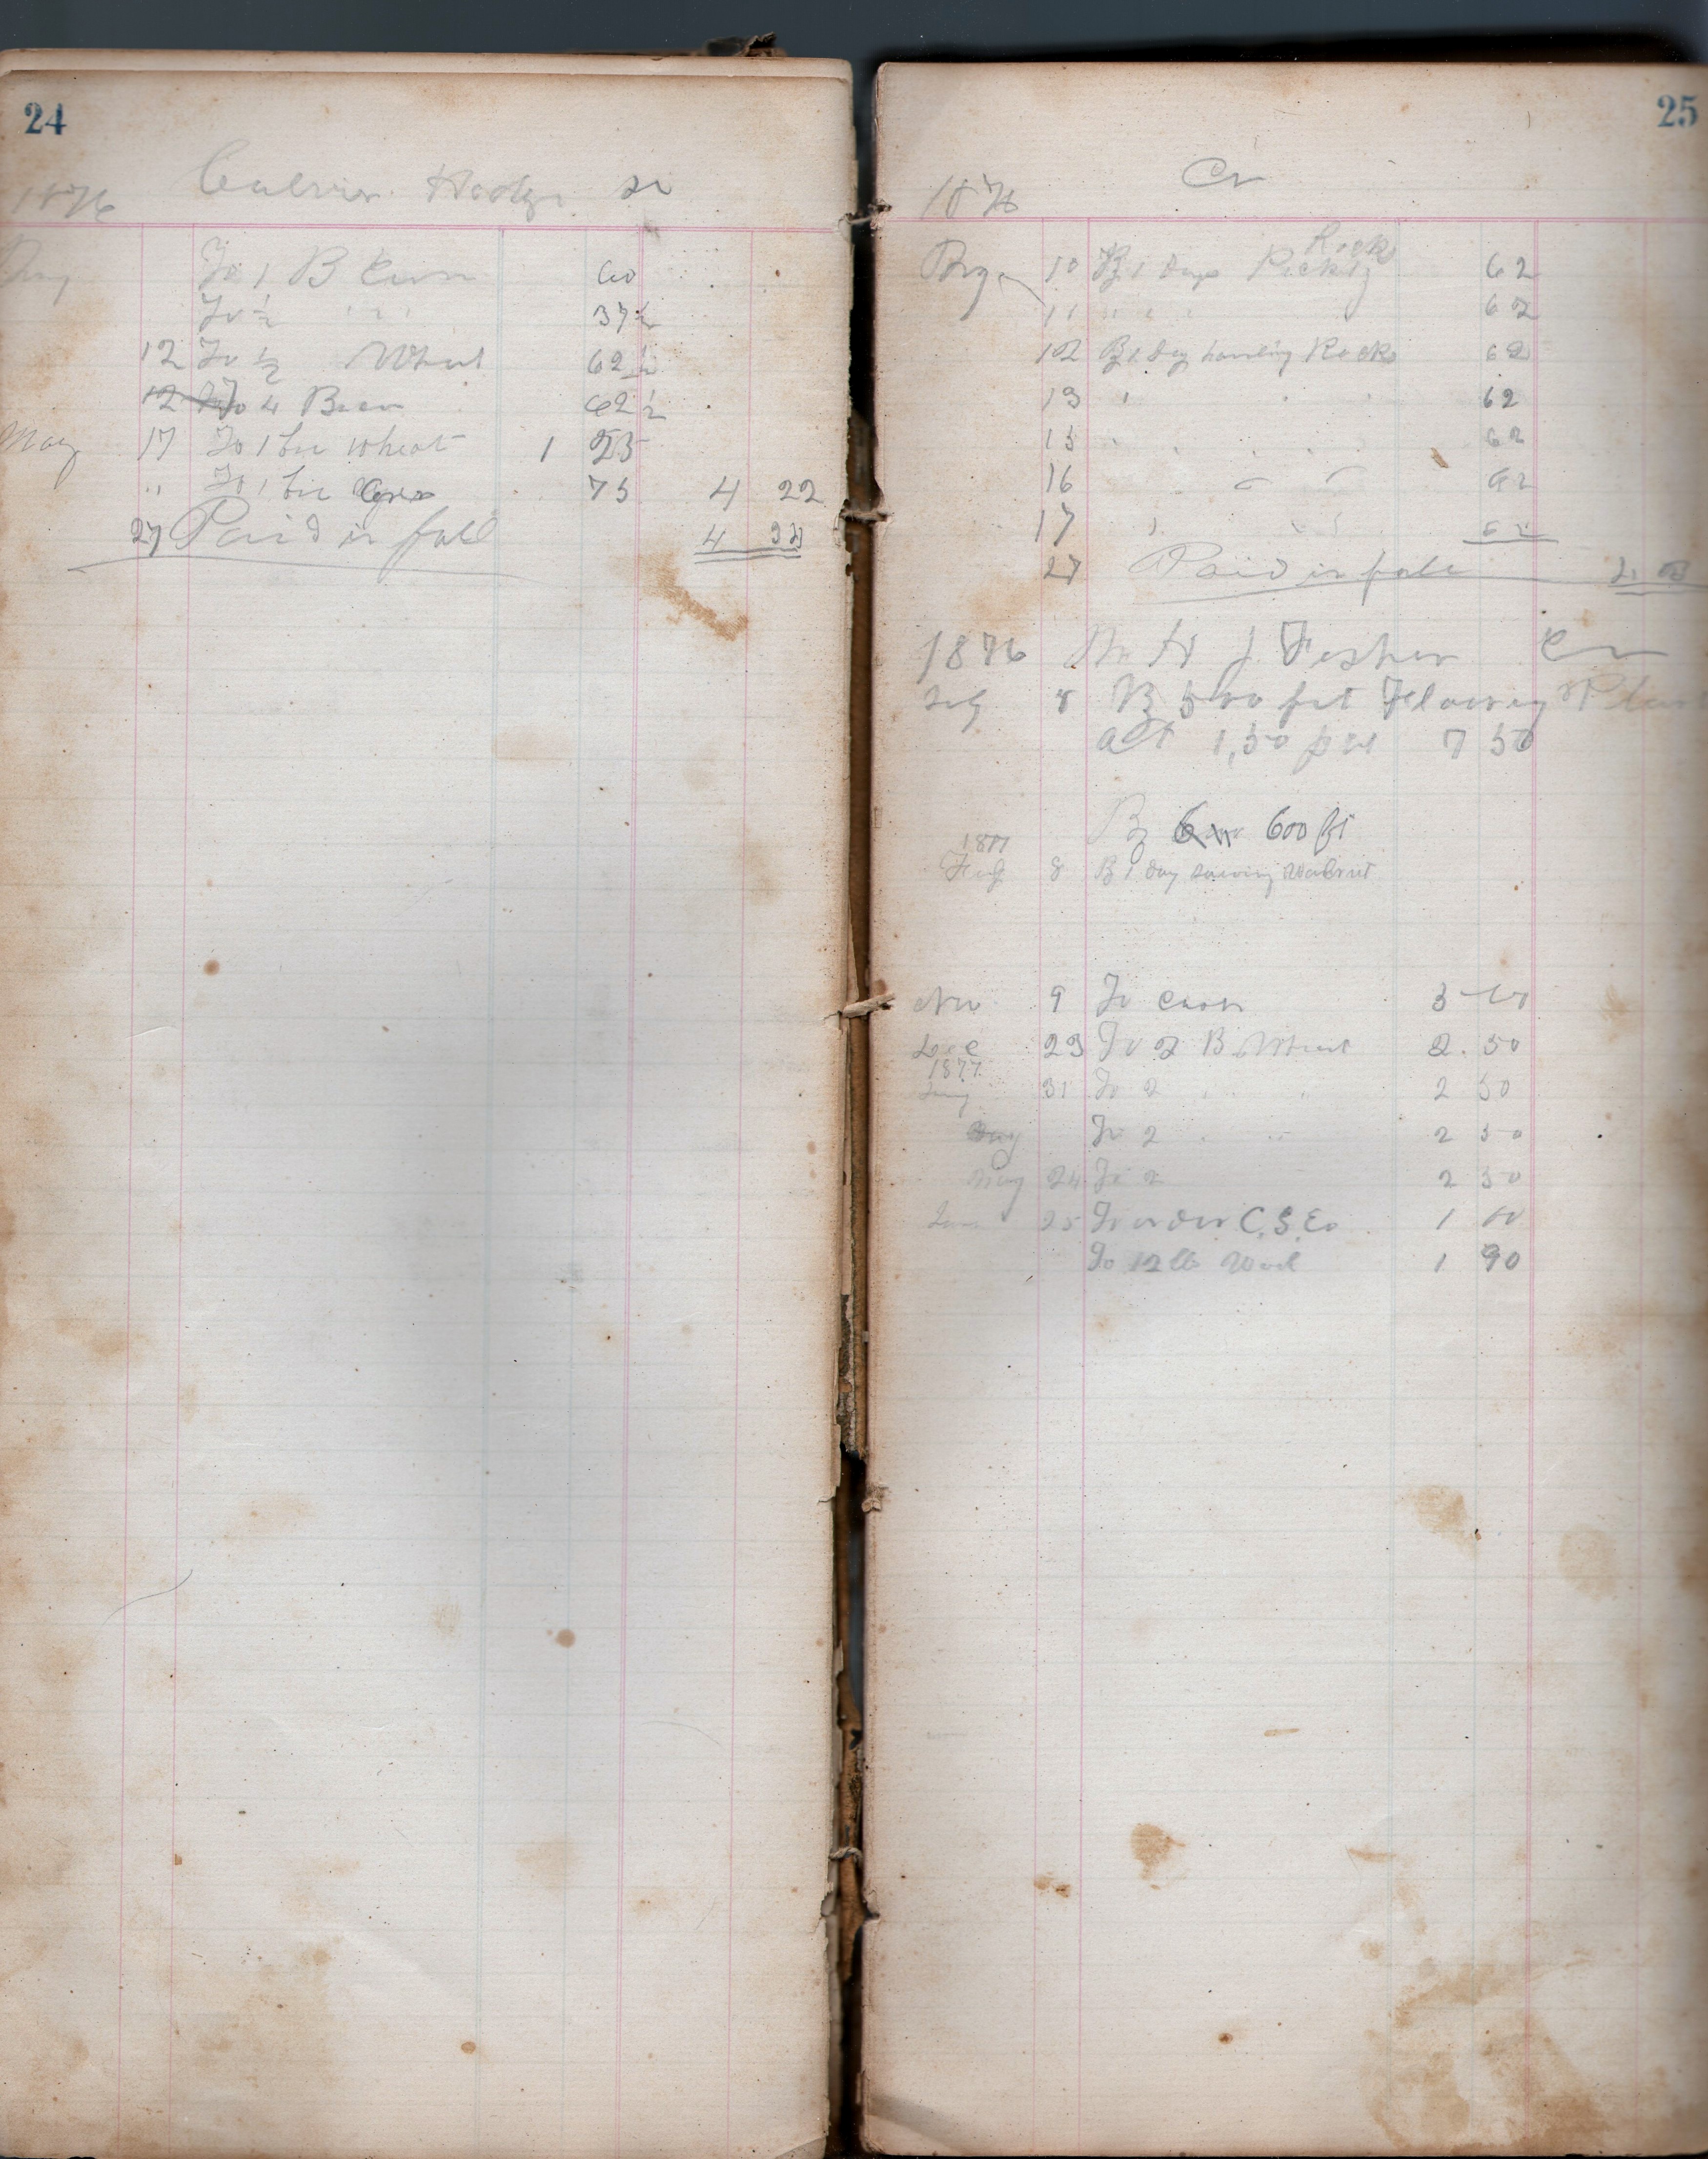 24
1876 Hodge Dr
To 1 B Corn 60
To ½ " " 37½
12 To ½ Wheat 62½
12 To 4 Bacon 62½
May 17 To 1 bu wheat 1 25
" To 1 bu Corn 75 4 22
27 Paid in full 4 22
25
1876 Cr
10 By 1 Days Picking Rock 62
11 " " " 62
12 By 1 Day hauling Rock 62
13 " " " 62
15 " " " 62
16 " " 62
17 " " " 62
27 Paid in full
1876 J Fisher Cr
8 By 500 feet Flooring
at 1,50 per 7 50
By 600 ft
1877
8 By 1 day sawing Walnut
Nov 9 To Cash 3 00
Dec 23 To 2 B Wheat 2.50
1877
31 To 2 " " 2 50
To 2 " " 2 50
May 24 To 2 2 50
25 To order C.S. Co 1 00
To 12 lb Wool 1 90